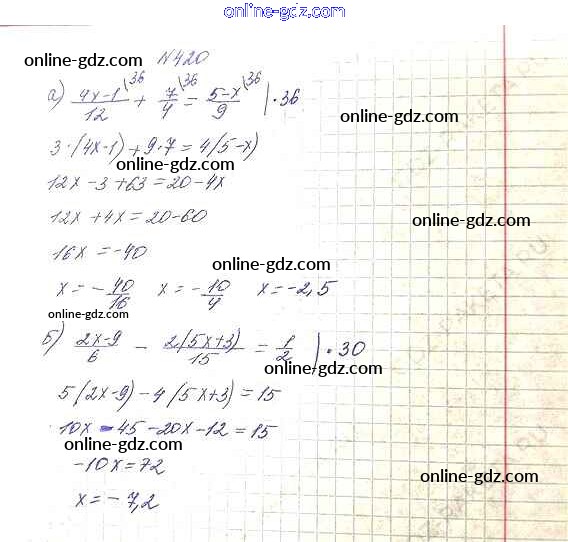 online-gdz.com
N420
online-gdz.com
а) (4x-1)/12 \36 + 7/4 \36 = (5-x)/9 \36 | · 36
online-gdz.com
3 · (4x-1) + 9 · 7 = 4(5-x)
online-gdz.com
12x - 3 + 63 = 20 - 4x
12x + 4x = 20 - 60
online-gdz.com
16x = -40
online-gdz.com
x = - 40/16 x = - 10/4 x = -2,5
online-gdz.com
б) (2x-9)/6 - 2(5x+3)/15 = 1/2 | · 30
online-gdz.com
5(2x-9) - 4(5x+3) = 15
10x - 45 - 20x - 12 = 15
online-gdz.com
-10x = 72
online-gdz.com
x = - 7,2